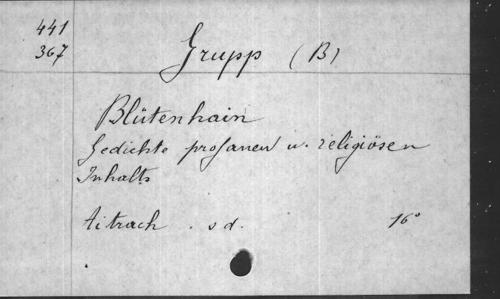 441
367
Grupp (B)
Blütenhain
Gedichte profanen u. religiösen
Inhalts
Aitrach . s d. 16°